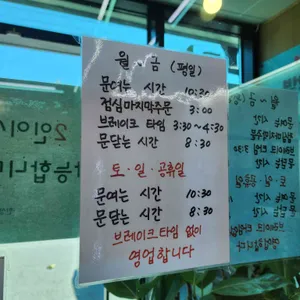 월 ~ 금 (평일)
문여는 시간 10:30
점심마지막주문 3:00
브레이크 타임 3:30~4:30
문닫는 시간 8:30
토·일·공휴일
문여는 시간 10:30
문닫는 시간 8:30
브레이크타임 없이
영업합니다